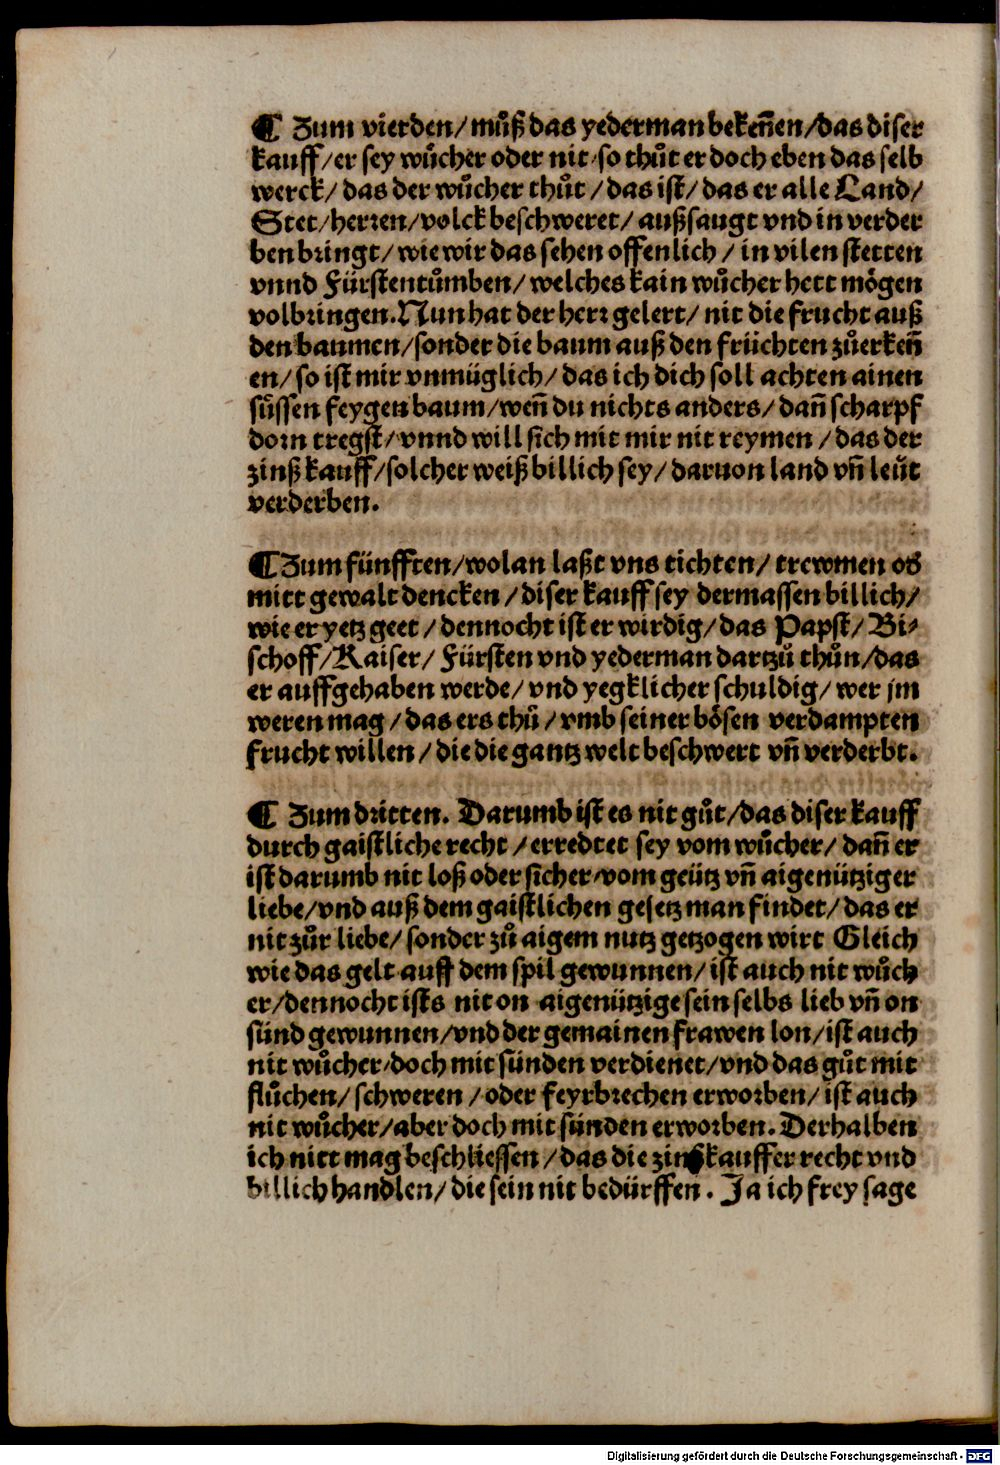 ¶ Zum vierden/ muͦß das yederman bekeñen/das diser
kauff/er sey wuͦcher oder nit/so thuͦt er doch eben das selb
werck/ das der wuͦcher thuͦt / das ist/ das er alle Land/
Stet/herren/volck beschweret/ außsaugt vnd in verder
ben bringt/ wie wir das sehen offenlich / in vilen stetten
vnnd Fürstentuͦmben/ welches kain wuͦcher hett mögen
volbringen. Nun hat der herr gelert/ nit die frucht auß
den baumen/sonder die baum auß den früchten zuͦerkeñ
en/ so ist mir vnmüglich/ das ich dich soll achten ainen
süssen feygen baum/weñ du nichts anders/ dañ scharpf
dorn tregst/vnnd will sich mit mir nit reymen / das der
zinß kauff/solcher weiß billich sey/ daruon land vñ leüt
verderben.
¶ Zum fünfften/wolan laßt vns tichten/ trewmen ob
mitt gewalt dencken / diser kauff sey dermassen billich/
wie er yetz geet / dennocht ist er wirdig/ das Papst/ Bi-
schoff/Kaiser/ Fürsten vnd yederman dartzuͦ thuͦn/das
er auffgehaben werde/ vnd yegklicher schuldig/ wer jm
weren mag / das ers thuͦ / vmb seiner bösen verdampten
frucht willen / die die gantz welt beschwert vñ verderbt.
¶ Zum dritten. Darumb ist es nit guͦt/das diser kauff
durch gaistliche recht / erredtet sey vom wuͦcher/ dañ er
ist darumb nit loß oder sicher/vom geütz vñ aigenütziger
liebe/vnd auß dem gaistlichen gesetz man findet/ das er
nit zuͦr liebe/ sonder zuͦ aigem nutz getzogen wirt Gleich
wie das gelt auff dem spil gewunnen/ ist auch nit wuͦch
er/dennocht ists nit on aigenützige sein selbs lieb vñ on
sünd gewunnen/vnd der gemainen frawen lon/ist auch
nit wuͦcher/doch mit sünden verdienet/vnd das guͦt mit
fluͦchen/ schweren / oder feyrbrechen erworben/ ist auch
nit wuͦcher/aber doch mit sünden erworben. Derhalben
ich nitt mag beschliessen / das die zinßkauffer recht vnd
billich handlen/ die sein nit bedürffen . Ja ich frey sage
Digitalisierung gefördert durch die Deutsche Forschungsgemeinschaft - DFG